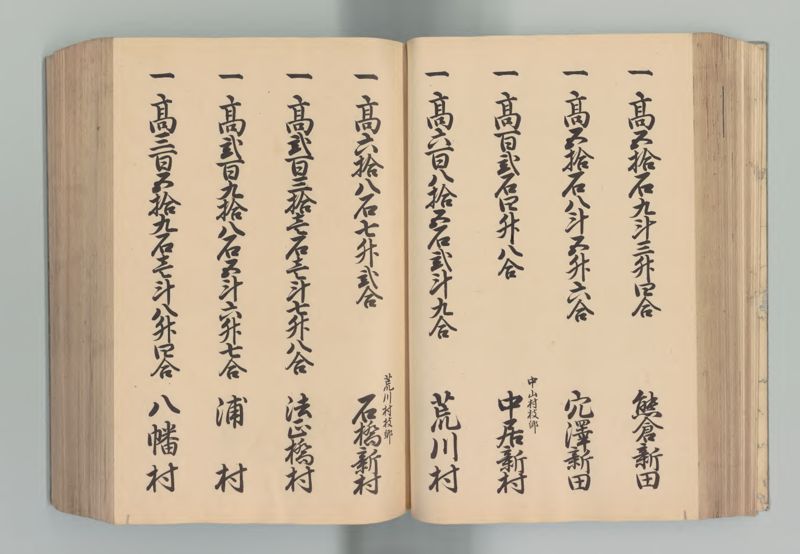 一 高五拾石九斗三升四合 熊倉新田
一 高五拾石八斗五升六合 穴澤新田
一 高百弐石四升八合 中山村枝郷 中居新村
一 高六百八拾五石弐斗九合 荒川村
一 高六拾八石七升弐合 荒川村枝郷 石橋新村
一 高弐百三拾壱石壱斗七升八合 法正橋村
一 高弐百九拾八石五斗六升七合 浦村
一 高三百五拾九石壱斗八升四合 八幡村